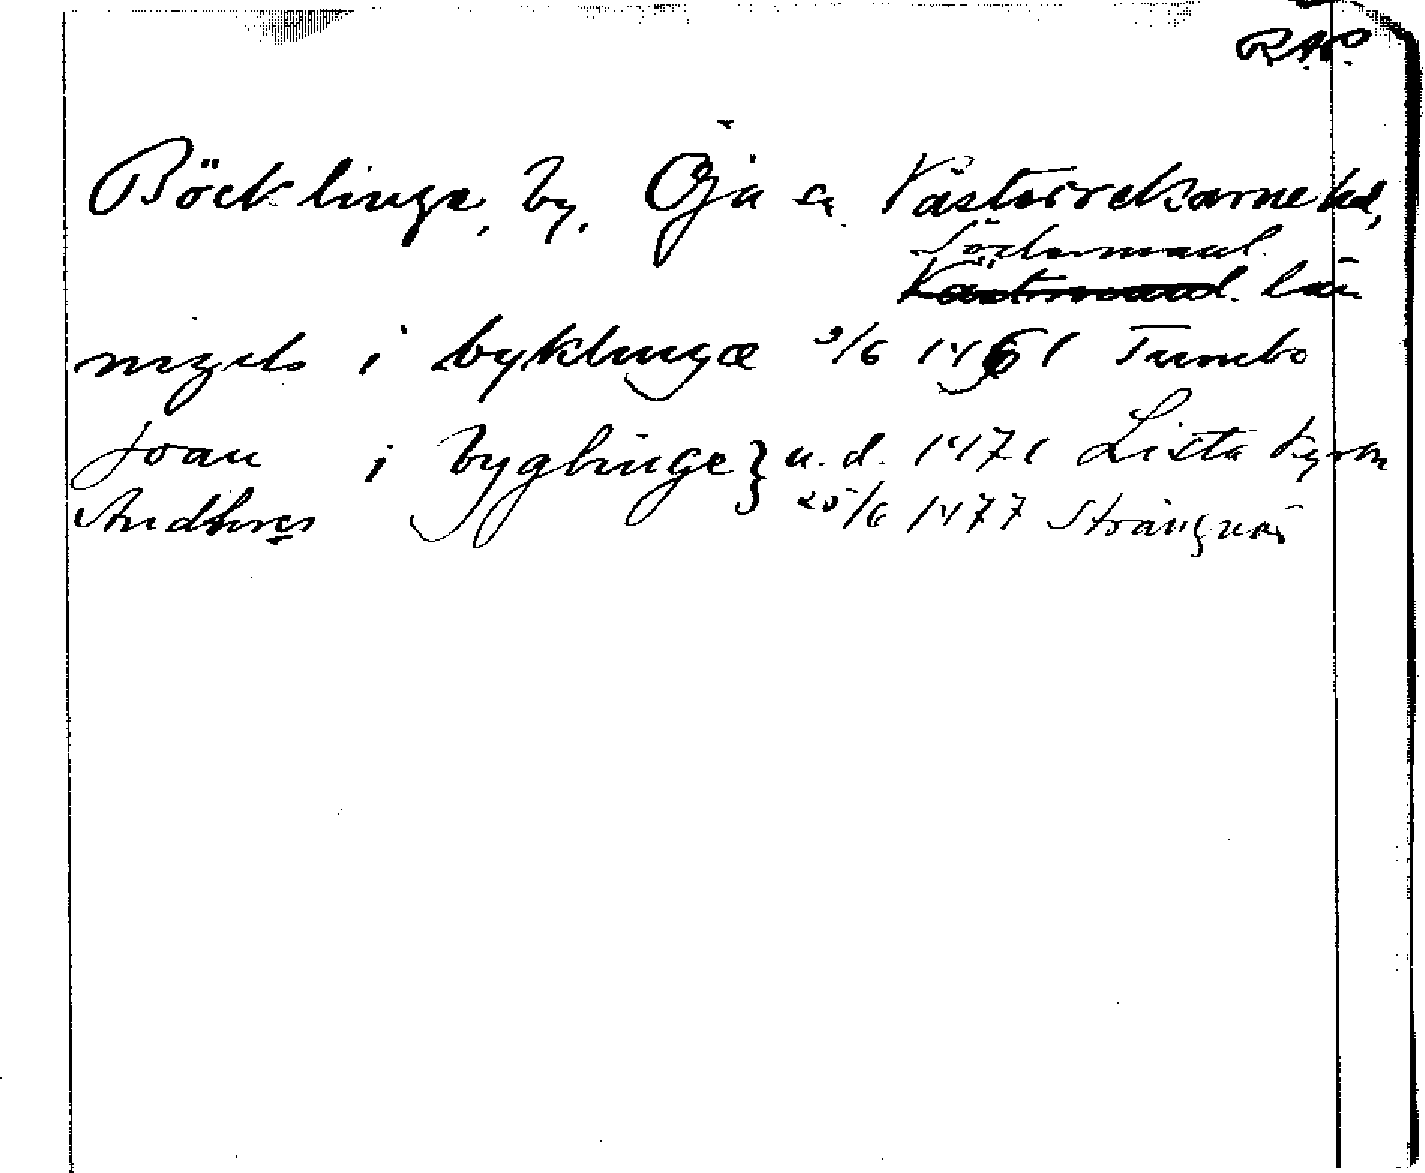 RAP
Böcklinge, by, Öja sn Västerrekarne hd,
Södermanl.
Västmanl. län
nigels i byklingæ 9/6 1461 Tumbo
Joan i byglinge } u. d. 1471 Lista kyrka
Andhres 25/6 1477 Strängnäs